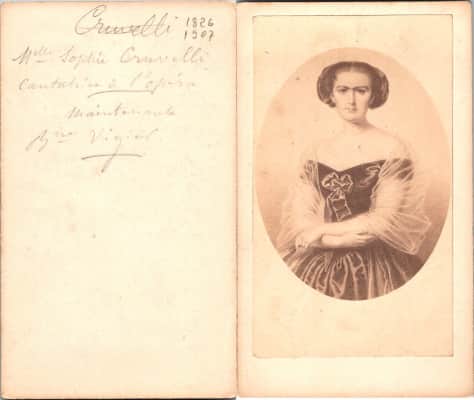 Cruvelli 1826
1907
Melle Sophie Cruvelli
Cantatrice à l'opéra
Maintenant
Vigier